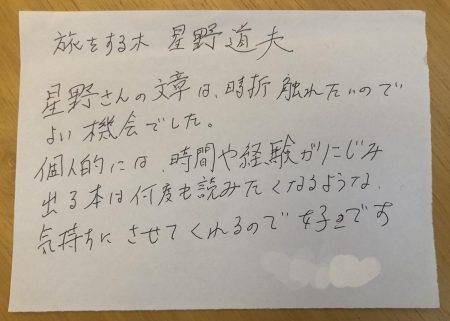 旅をする木 星野道夫
星野さんの文章は、時折触れたいので
よい機会でした。
個人的には、時間や経験がにじみ
出る本は何度も読みたくなるような、
気持ちにさせてくれるので好きです